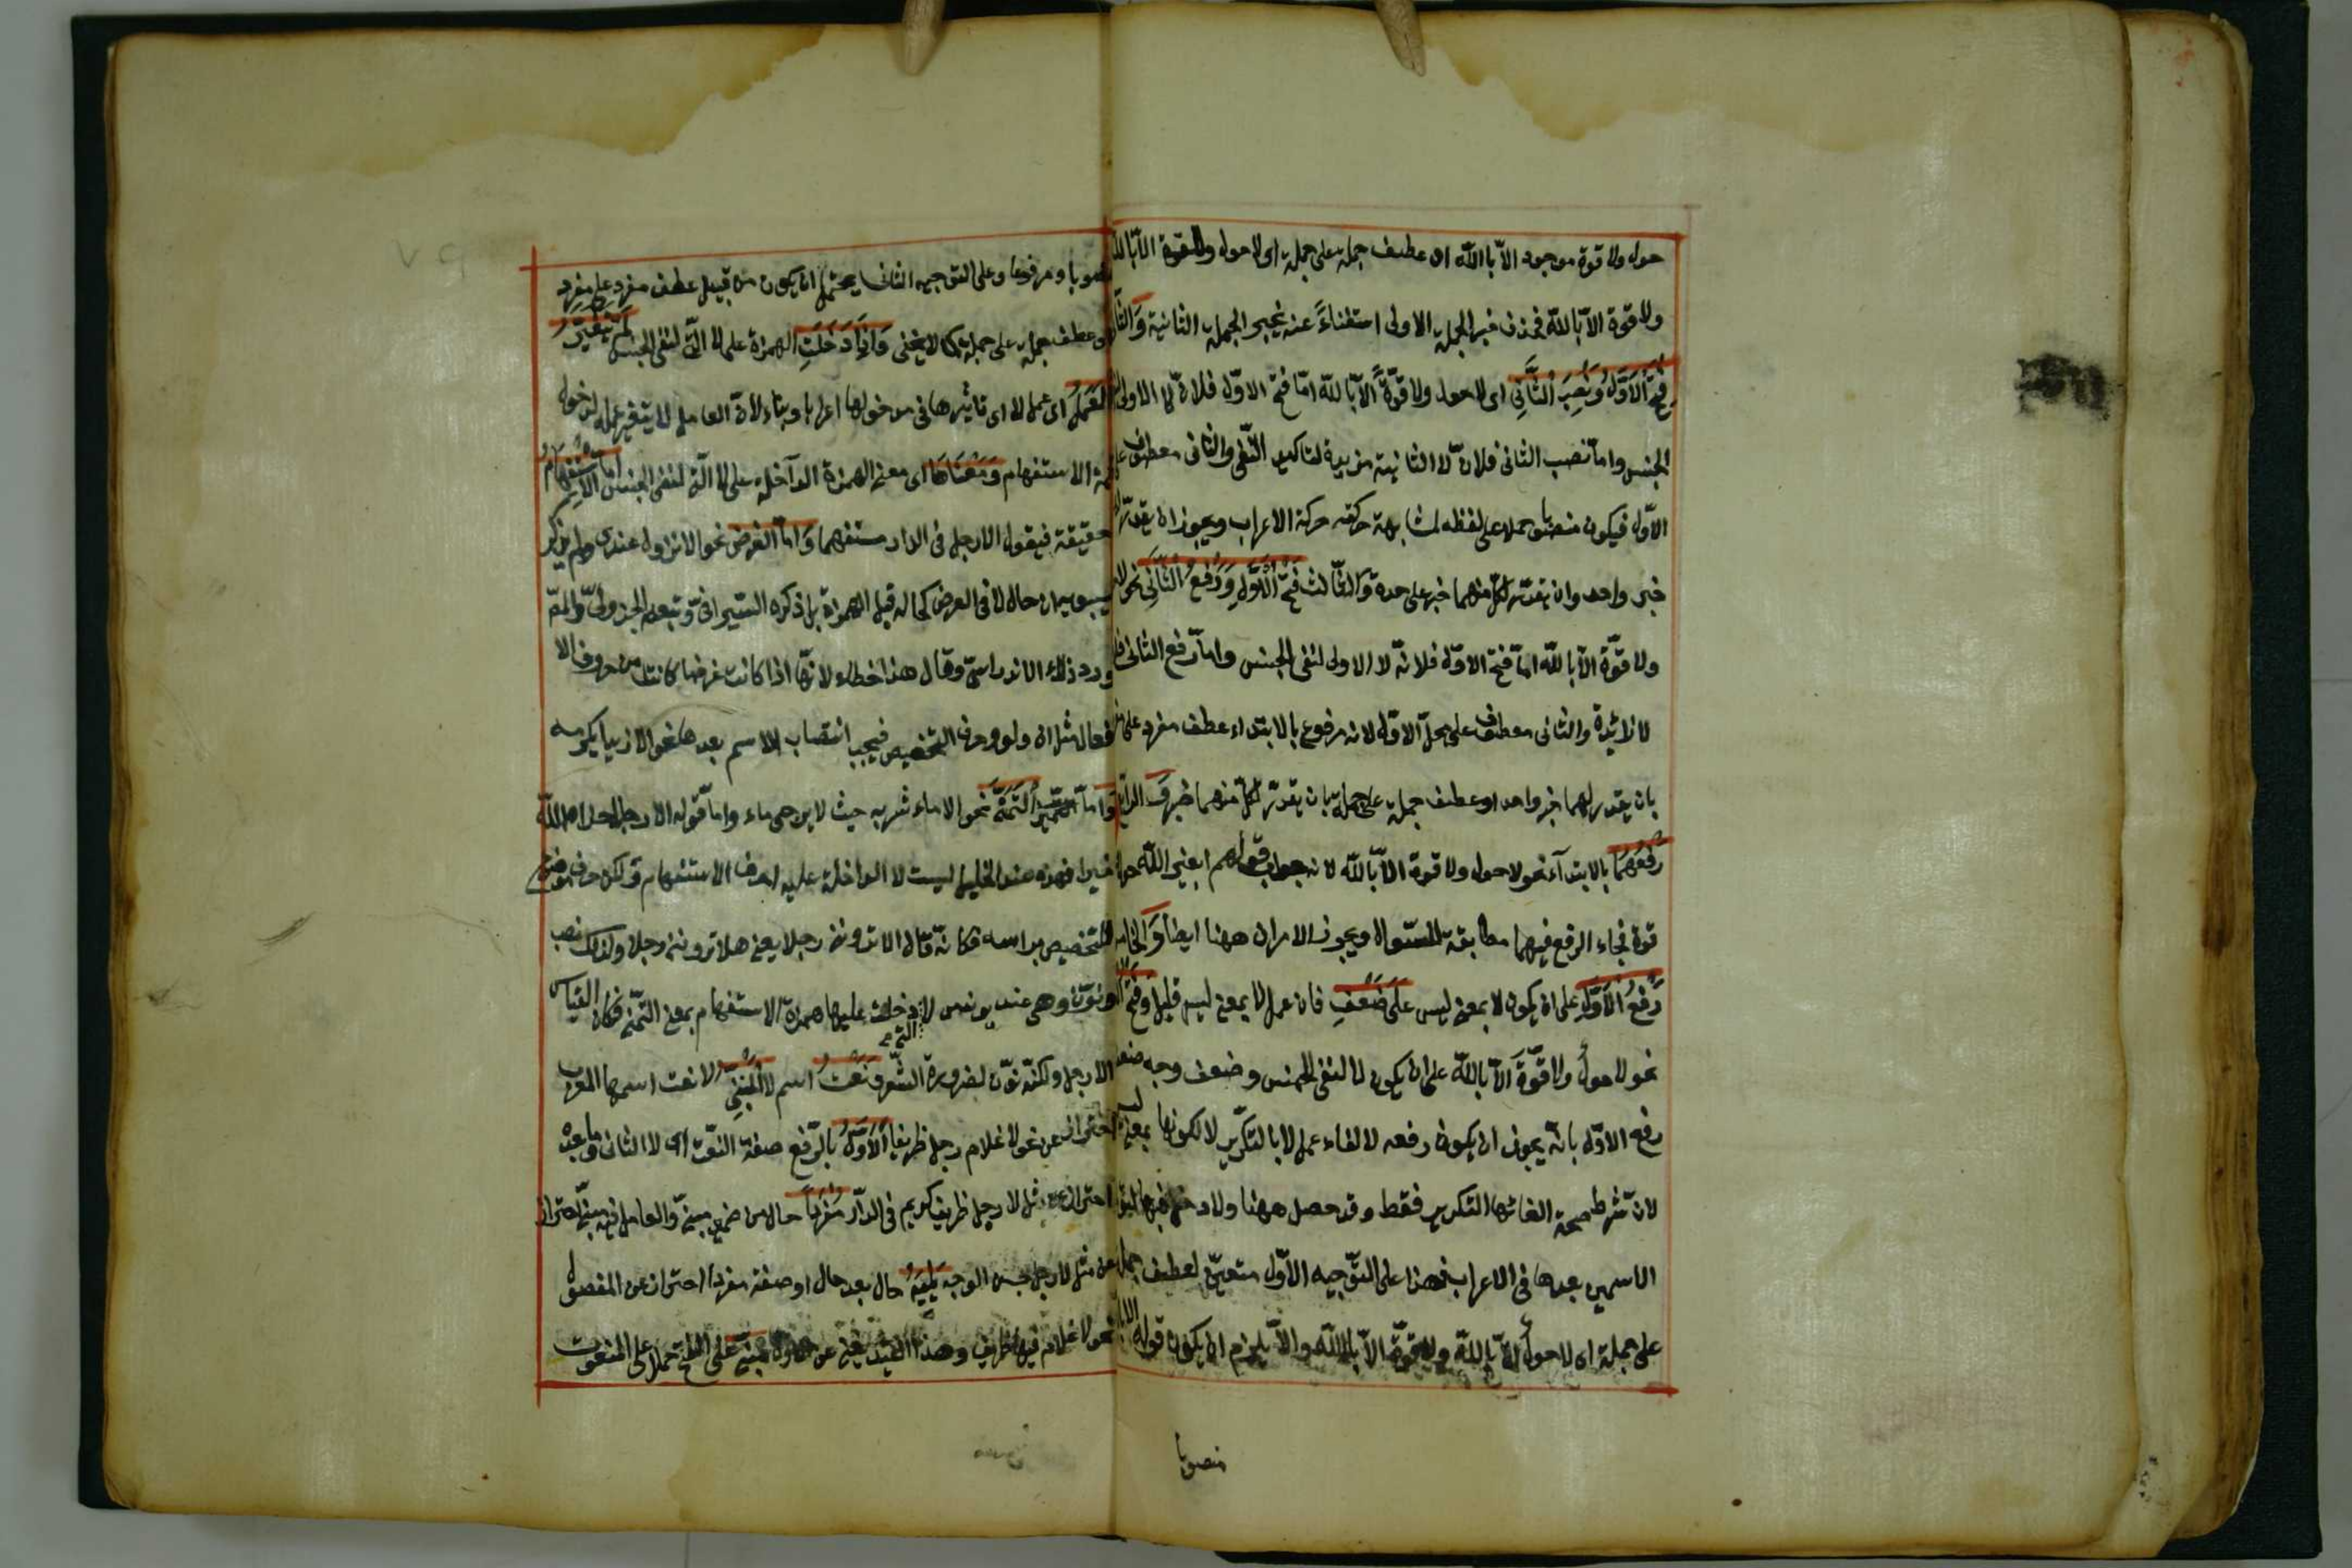 حول ولا قوة موجود الاّ باالله او عطف جملة على جملة اى لا حول ولا قوة الاّ بالله
ولا قوة الاّ بالله فحذف خبر الجملة الاولى استغناءً عنه بخبر الجملة الثانية وَالثّانى
فَتْحُ الْاَوَّلِ وَنَصْبُ الثَّانِى اى لا حول ولا قوّةً الاّ بالله امّا فتح الاوّل فلانّ لا الاولى لنفى
الجنس وامّا نصب الثانى فلانّ لا الثانية مزيدة لتاكيد النّفى والثانى معطوف على
الاوّل فيكون منصوبا حملا على لفظه لمشابهة حركته حركة الاعراب ويجوز ان يقدّر لهما
خبر واحد وان يقدّر لكلّ منهما خبر على حدة وَالثَّالث فَتْحُ الْاَوَّلِ وَرَفْعُ الثَّانِى نحو لا حول
ولا قوّة الاّ بالله امّا فتح الاوّل فلانّ لا الاولى لنفى الجنس وامّا رفع الثانى فلان
لا زائدة والثانى معطوف على محلّ الاوّل لانه مرفوع بالابتداء عطف مفرد على مفرد
بان يقدر لهما خبر واحد او عطف جملة على جملة بان يقدّر لكلّ منهما خبر وَ الرابع
رَفْعُهُمَا بالابتدآء نحو لا حول ولا قوة الاّ بالله لانه جواب قولهم ابغير الله حول
قوة فجاء الرفع فيهما مطابقة للسّوال ويجوز الامران ههنا ايضاً وَالخامس
رَفْعُ الْاَوَّلِ على ان يكون لا بمعنى ليس عَلَى ضَعْفٍ فان عمل لا بمعنى ليس قليل وَفَتْحُ الثانى
نحو لا حولٌ ولا قُوّةَ الاّ بالله على ان يكون لا لنفى الجنس وضعف وجه ضعف
رفع الاوّل بانّه يجوز ان يكون رفعه لالغاء عمل لا بالتكرير لا لكونها بمعنى ليس
لانّ شرط صحة الغائها التكرير فقط وقد حصل ههنا ولا دخل فيها لتوافق
الاسمين بعدها فى الاعراب فهذا على التّوجيه الاوّل متعيّن لعطف جملة
على جملة اى لا حولٌ الاّ بالله ولا قوّةَ الاّ بالله والاّ يلزم ان يكون قوله الاّ بالله
منصوبا
منصوبا ومرفوعا وعلى التوجيه الثانى يحتمل ان يكون من قبيل عطف مفرد على مفرد
او عطف جملة على جملة كما لا يخفى وَاِذَا دَخَلَتِ الهمزة على لا الّتى لنفى الجنس لَمْ يَتَغَيَّرْ
الْعَمَلُ اى عمل لا اى تاثيرها فى مدخولها اعرابا وبناء لانّ العامل لا يتغير عمله لدخول
همزة الاستفهام وَمَعْنَاهَا اى معنى الهمزة الداخلة على لا الّتى لنفى الجنس امّا الاِسْتِفْهَامُ
حقيقة فيقول الا رجل فى الدار مستفهما وَامّا العَرْضُ نحو الا نزول عندى ولم يذكر
سيبويه ان حال لا فى العرض كحاله قبل الهمزة بل ذكره السّيرافىّ وتبعه الجزولىّ والمصّ
ورد ذلك الاندلسىّ وقال هذا خطاء لانّها اذا كانت عرضا كانت من حروف الا
فعال مثل ان ولو وحرف التحضيض فيجب انتصاب الاسم بعدها نحو الا زيدا تكرمه
وَامّا التَّمَنِّى نحو الا ماء شربه حيث لا يرجى ماء وامّا قوله الا رجلا جزاه الله
خيرا فهذه عند الخليل ليست لا الداخلة عليه حرف الاستفهام ولكن حرف موضوع
للتحضيض براسه فكانّه قال الا ترونى رجلا يعنى هلا ترونى رجلا ولذلك نصب
ونوّن وهى عند يونس لا التى دخلت عليها همزة الاستفهام بمعنى التّمنى فكان القياس
الا رجل ولكنّه نوّن لضرورة الشّعر وَنَعْتُ اسم لا الْمَبْنِىِّ لا نعت اسمها المعرب
احتراز عن نحو لا غلام رجل ظريفا الْاَوَّلُ بالرّفع صفة النّعت اى لا الثانى وما بعده
احتراز عن مثل لا رجل ظريف كريم فى الدّار مُفْرَداً حال من ضمير مبنىّ والعامل فيه مبنىّ احتراز
عن مثل لا رجل حسن الوجه يَلِيْهِ حال بعد حال او صفة مفردا احتراز عن المفصول
نحو لا غلام فيها ظريف وهذا القيد يغنى عن الاوّل مَبْنِىٌّ على الفتح حملا على المنعوت